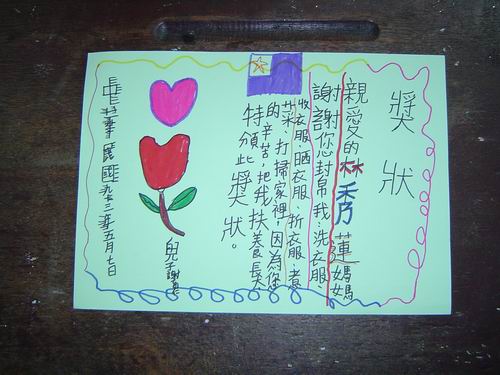 獎狀
親愛的林秀蓮媽媽
謝謝您封帛我、洗衣服、
收衣服、晒衣服、折衣服、煮
菜、打掃家裡,因為您
的辛苦,把我扶養長大
特頒此獎狀。
兒子謝
中華民國九十三年五月七日